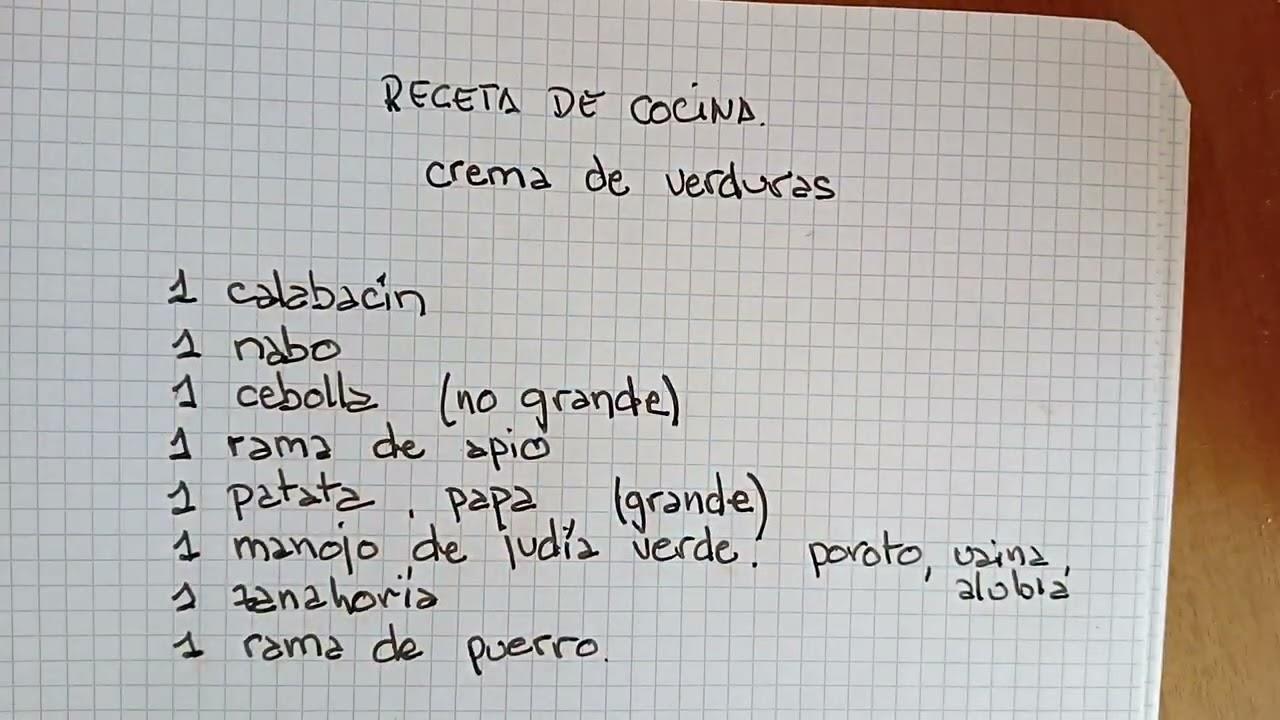 RECETA DE COCINA.
crema de verduras
1 calabacín
1 nabo
1 cebolla (no grande)
1 rama de apio
1 patata, papa (grande)
1 manojo de judía verde. poroto, vaina,
alubia
1 zanahoria
1 rama de puerro.